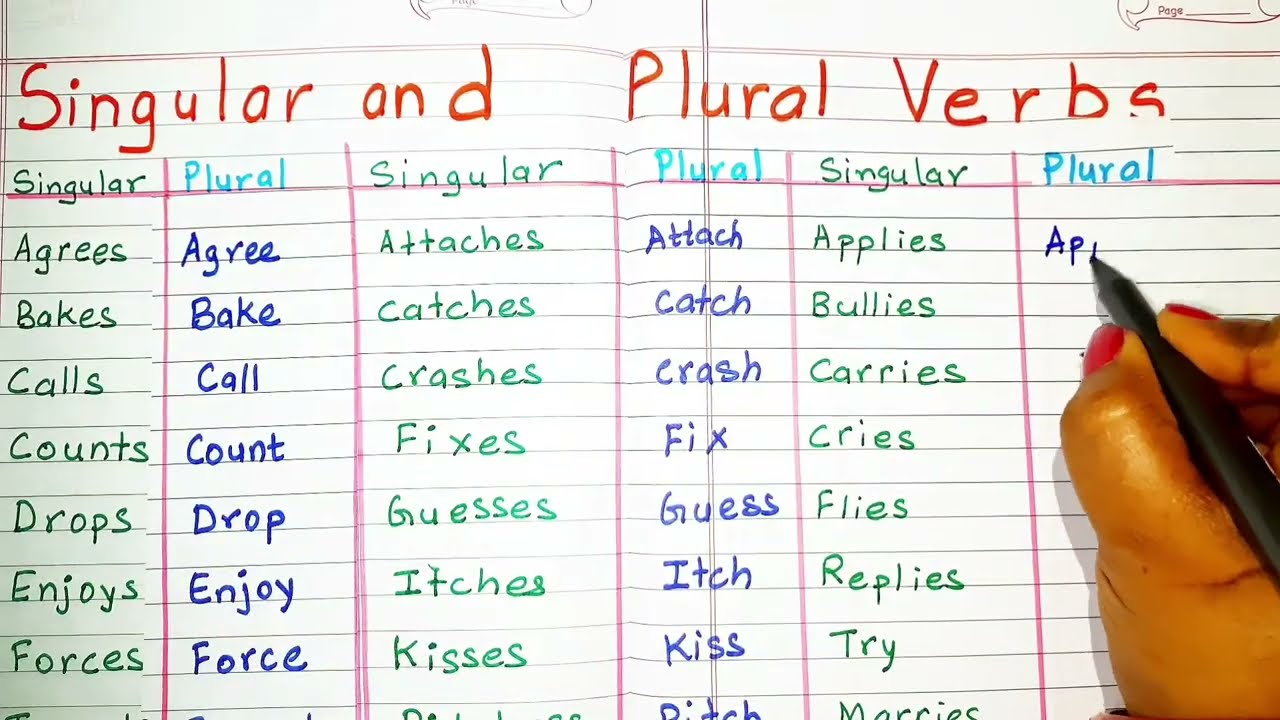 Page
Page
Singular and Plural Verbs
Singular Plural Singular Plural Singular Plural
Agrees Agree Attaches Attach Applies Ap
Bakes Bake Catches Catch Bullies
Calls Call Crashes Crash Carries
Counts Count Fixes Fix Cries
Drops Drop Guesses Guess Flies
Enjoys Enjoy Itches Itch Replies
Forces Force Kisses Kiss Try
Pitch Marries